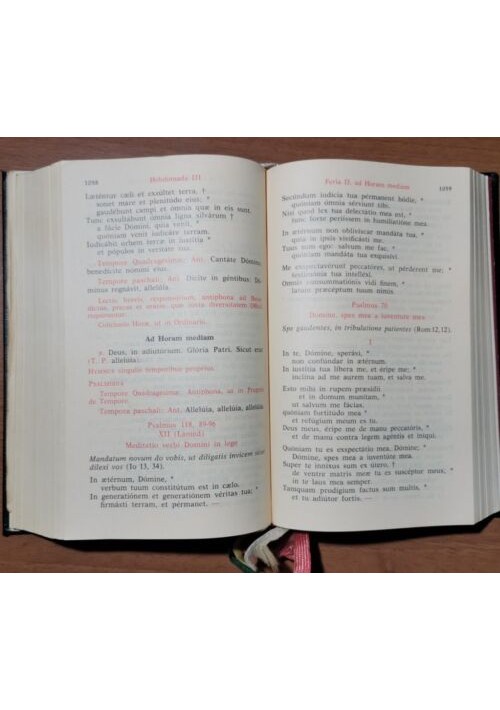 1098
Hebdomada III
Læténtur cæli et exsúltet terra, †
sonet mare et plenitúdo eius; *
gaudébunt campi et ómnia quæ in eis sunt.
Tunc exsultábunt ómnia ligna silvárum †
a fácie Dómini, quia venit, *
quóniam venit iudicáre terram.
Iudicábit orbem terræ in iustítia *
et pópulos in veritáte sua.
Tempore Quadragesimæ: Ant. Cantáte Dómino,
benedícite nómini eius.
Tempore paschali: Ant. Dícite in géntibus: Dó-
minus regnávit, allelúia.
Lectio brevis, responsorium, antiphona ad Bene-
dictus, preces et oratio iuxta diversitatem Officii
requiruntur.
Conclusio Horæ, ut in Ordinario.
Ad Horam mediam
Deus, in adiutórium. Glória Patri. Sicut erat.
(T. P. allelúia).
Hymnus singulis temporibus proprius.
Psalmodia
Tempore Quadragesimæ: Antiphona, ut in Proprio
de Tempore.
Tempore paschali: Ant. Allelúia, allelúia, allelúia.
Psalmus 118, 89-96
XII (Lamed)
Meditatio verbi Domini in lege
Mandatum novum do vobis, ut diligatis invicem sicut
dilexi vos (Io 13, 34).
In ætérnum, Dómine, *
verbum tuum constitútum est in cælo.
In generatiónem et generatiónem véritas tua; *
firmásti terram, et pérmanet. —
Feria II, ad Horam mediam
1099
Secúndum iudícia tua pérmanent hódie, *
quóniam ómnia sérviunt tibi.
Nisi quod lex tua delectátio mea est, *
tunc forte periíssem in humiliatióne mea.
In ætérnum non oblivíscar mandáta tua, *
quia in ipsis vivificásti me.
Tuus sum ego: salvum me fac, *
quóniam mandáta tua exquisívi.
Me exspectavérunt peccatóres, ut pérderent me; *
testimónia tua intelléxi.
Omnis consummatiónis vidi finem, *
latum præcéptum tuum nimis.
Psalmus 70
Domine, spes mea a iuventute mea
Spe gaudentes, in tribulatione patientes (Rom 12,12).
I
In te, Dómine, sperávi, *
non confúndar in ætérnum.
In iustítia tua líbera me, et éripe me; *
inclína ad me aurem tuam, et salva me.
Esto mihi in rupem præsídii
et in domum munítam, *
ut salvum me fácias,
quóniam fortitúdo mea *
et refúgium meum es tu.
Deus meus, éripe me de manu peccatóris, *
et de manu contra legem agéntis et iníqui.
Quóniam tu es exspectátio mea, Dómine; *
Dómine, spes mea a iuventúte mea.
Super te inníxus sum ex útero, †
de ventre matris meæ tu es suscéptor meus; *
in te laus mea semper.
Tamquam prodígium factus sum multis, *
et tu adiútor fortis. —